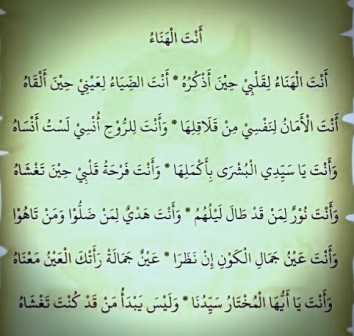 أَنْتَ الْهَنَاءُ
أَنْتَ الْهَنَاءُ لِقَلْبِيْ حِيْنَ أَذْكُرُهُ * أَنْتَ الضِّيَاءُ لِعَيْنِيْ حِيْنَ أَلْقَاهُ
أَنْتَ الْأَمَانُ لِنَفْسِيْ مِنْ قَلَاقِلِهَا * وَأَنْتَ لِلرُّوْحِ أُنْسِيْ لَسْتُ أَنْسَاهُ
وَأَنْتَ يَا سَيِّدِي الْبُشْرَى بِأَكْمَلِهَا * وَأَنْتَ فَرْحَةُ قَلْبِيْ حِيْنَ تَغْشَاهُ
وَأَنْتَ نُوْرٌ لِمَنْ قَدْ طَالَ لَيْلُهُمْ * وَأَنْتَ هَدْيٌ لِمَنْ ضَلُّوْا وَمَنْ تَاهُوْا
وَأَنْتَ عَيْنُ جَمَالِ الْكَوْنِ إِنْ نَظَرَا * عَيْنٌ جَمَالَةُ رَأَتْكَ الْعَيْنُ مَعْنَاهُ
وَأَنْتَ يَا أَيُّهَا الْمُخْتَارُ سَيِّدُنَا * وَلَيْسَ يَبْدَأُ مَنْ قَدْ كُنْتَ تَغْشَاهُ